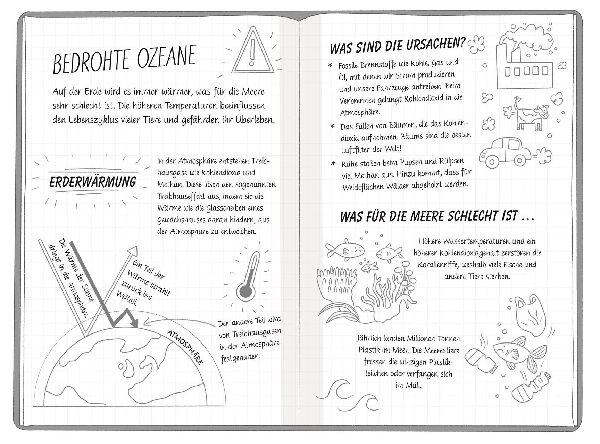 BEDROHTE OZEANE
Auf der Erde wird es immer wärmer, was für die Meere
sehr schlecht ist. Die höheren Temperaturen beeinflussen
den Lebenszyklus vieler Tiere und gefährden ihr Überleben.
ERDERWÄRMUNG
In der Atmosphäre entstehen Treib-
hausgase wie Kohlendioxid und
Methan. Diese lösen den sogenannten
Treibhauseffekt aus, indem sie die
Wärme wie die Glasscheiben eines
Gewächshauses daran hindern, aus
der Atmosphäre zu entweichen.
Die Wärme der Sonne
dringt in die Atmosphäre.
Ein Teil der
Wärme strahlt
zurück ins
Weltall.
Der andere Teil wird
von Treibhausgasen
in der Atmosphäre
festgehalten.
ATMOSPHÄRE
WAS SIND DIE URSACHEN?
* Fossile Brennstoffe wie Kohle, Gas und
Öl, mit denen wir Strom produzieren
und unsere Fahrzeuge antreiben. Beim
Verbrennen gelangt Kohlendioxid in die
Atmosphäre.
* Das Fällen von Bäumen, die das Kohlen-
dioxid aufnehmen. Bäume sind die besten
Luftfilter der Welt!
* Kühe stoßen beim Pupsen und Rülpsen
viel Methan aus. Hinzu kommt, dass für
Weideflächen Wälder abgeholzt werden.
WAS FÜR DIE MEERE SCHLECHT IST ...
Höhere Wassertemperaturen und ein
höherer Kohlendioxidgehalt zerstören die
Korallenriffe, weshalb viele Fische und
andere Tiere sterben.
Jährlich landen Millionen Tonnen
Plastik im Meer. Die Meerestiere
fressen die winzigen Plastik-
teilchen oder verfangen sich
im Müll.